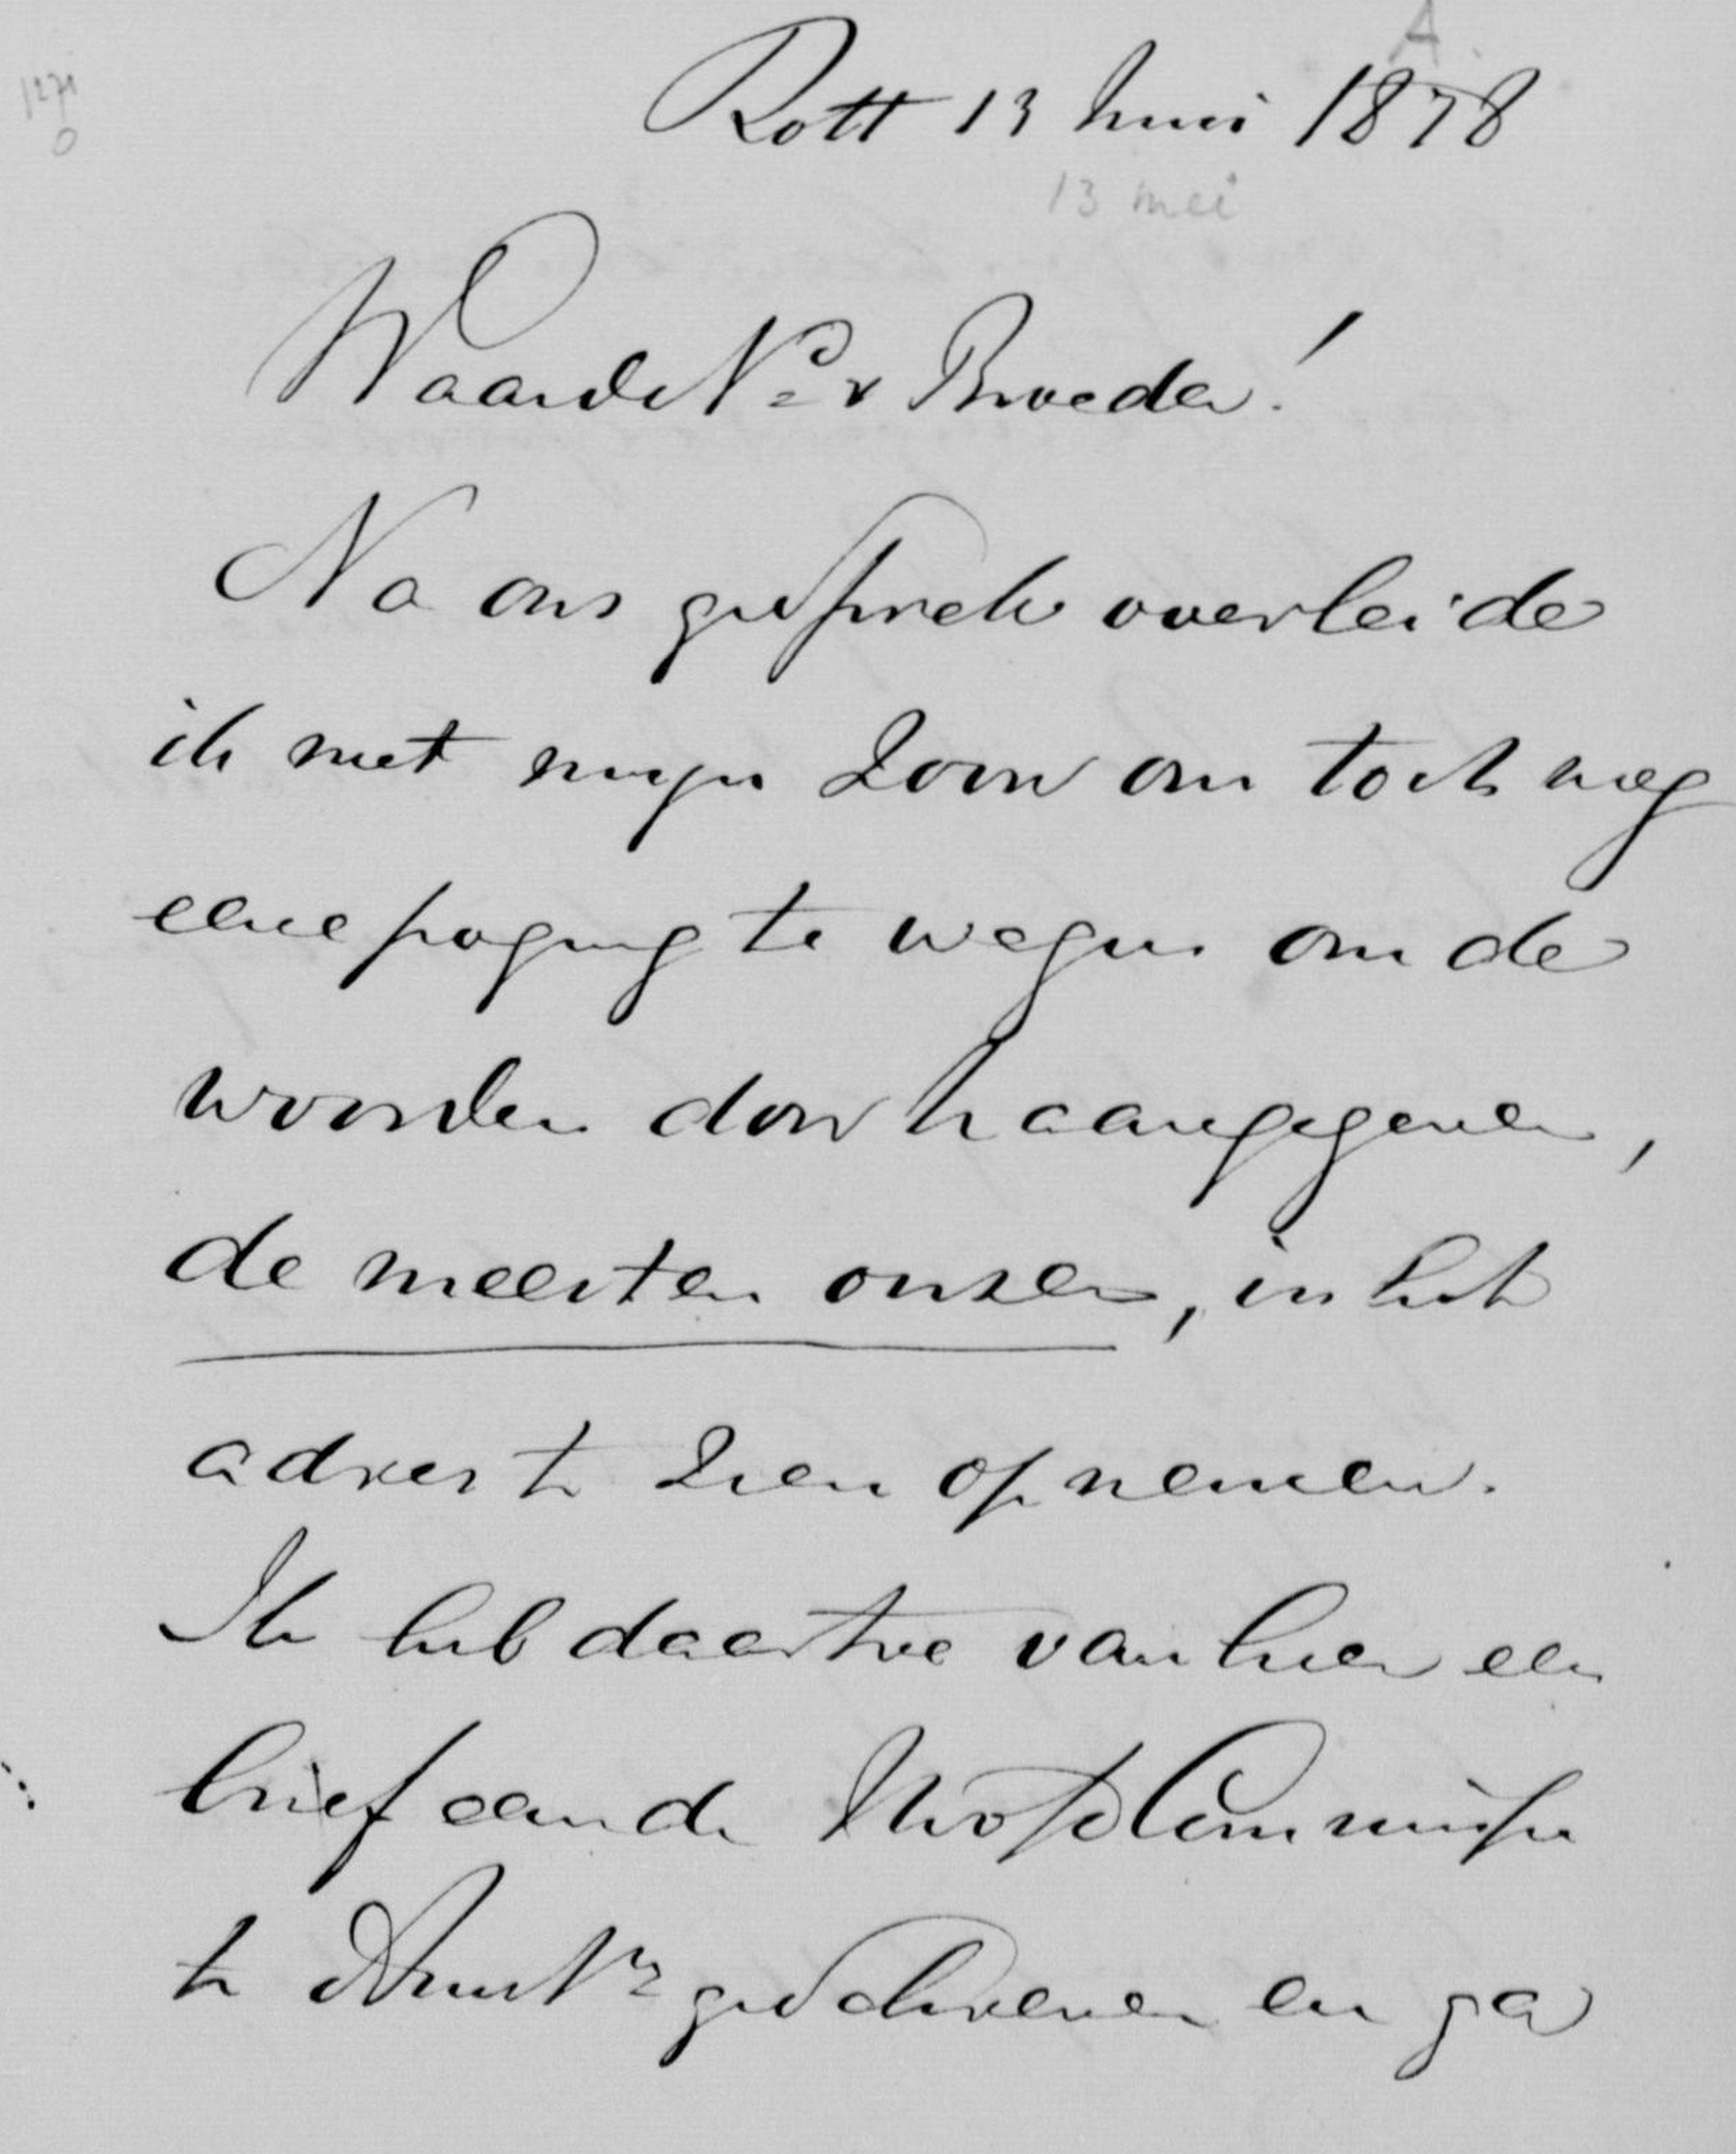 A.
1271
0
Rott 13 Juni 1878
13 mei
Waarde Vr & Broeder!
Na ons gesprek overleide
ik met mijn Zoon om toch nog
eene poging te wagen om de
woorden door U aangegeven,
de meesten onzer, in het
adres te zien opnemen.
Ik heb daartoe van hier een
brief aan de Hoofdcommissie
te geschreven en ga